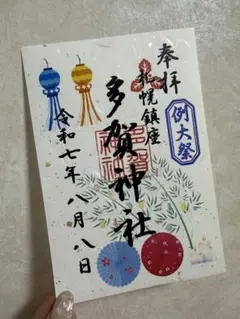 奉拝
札幌鎮座
例大祭
多賀神社
令和七年八月八日